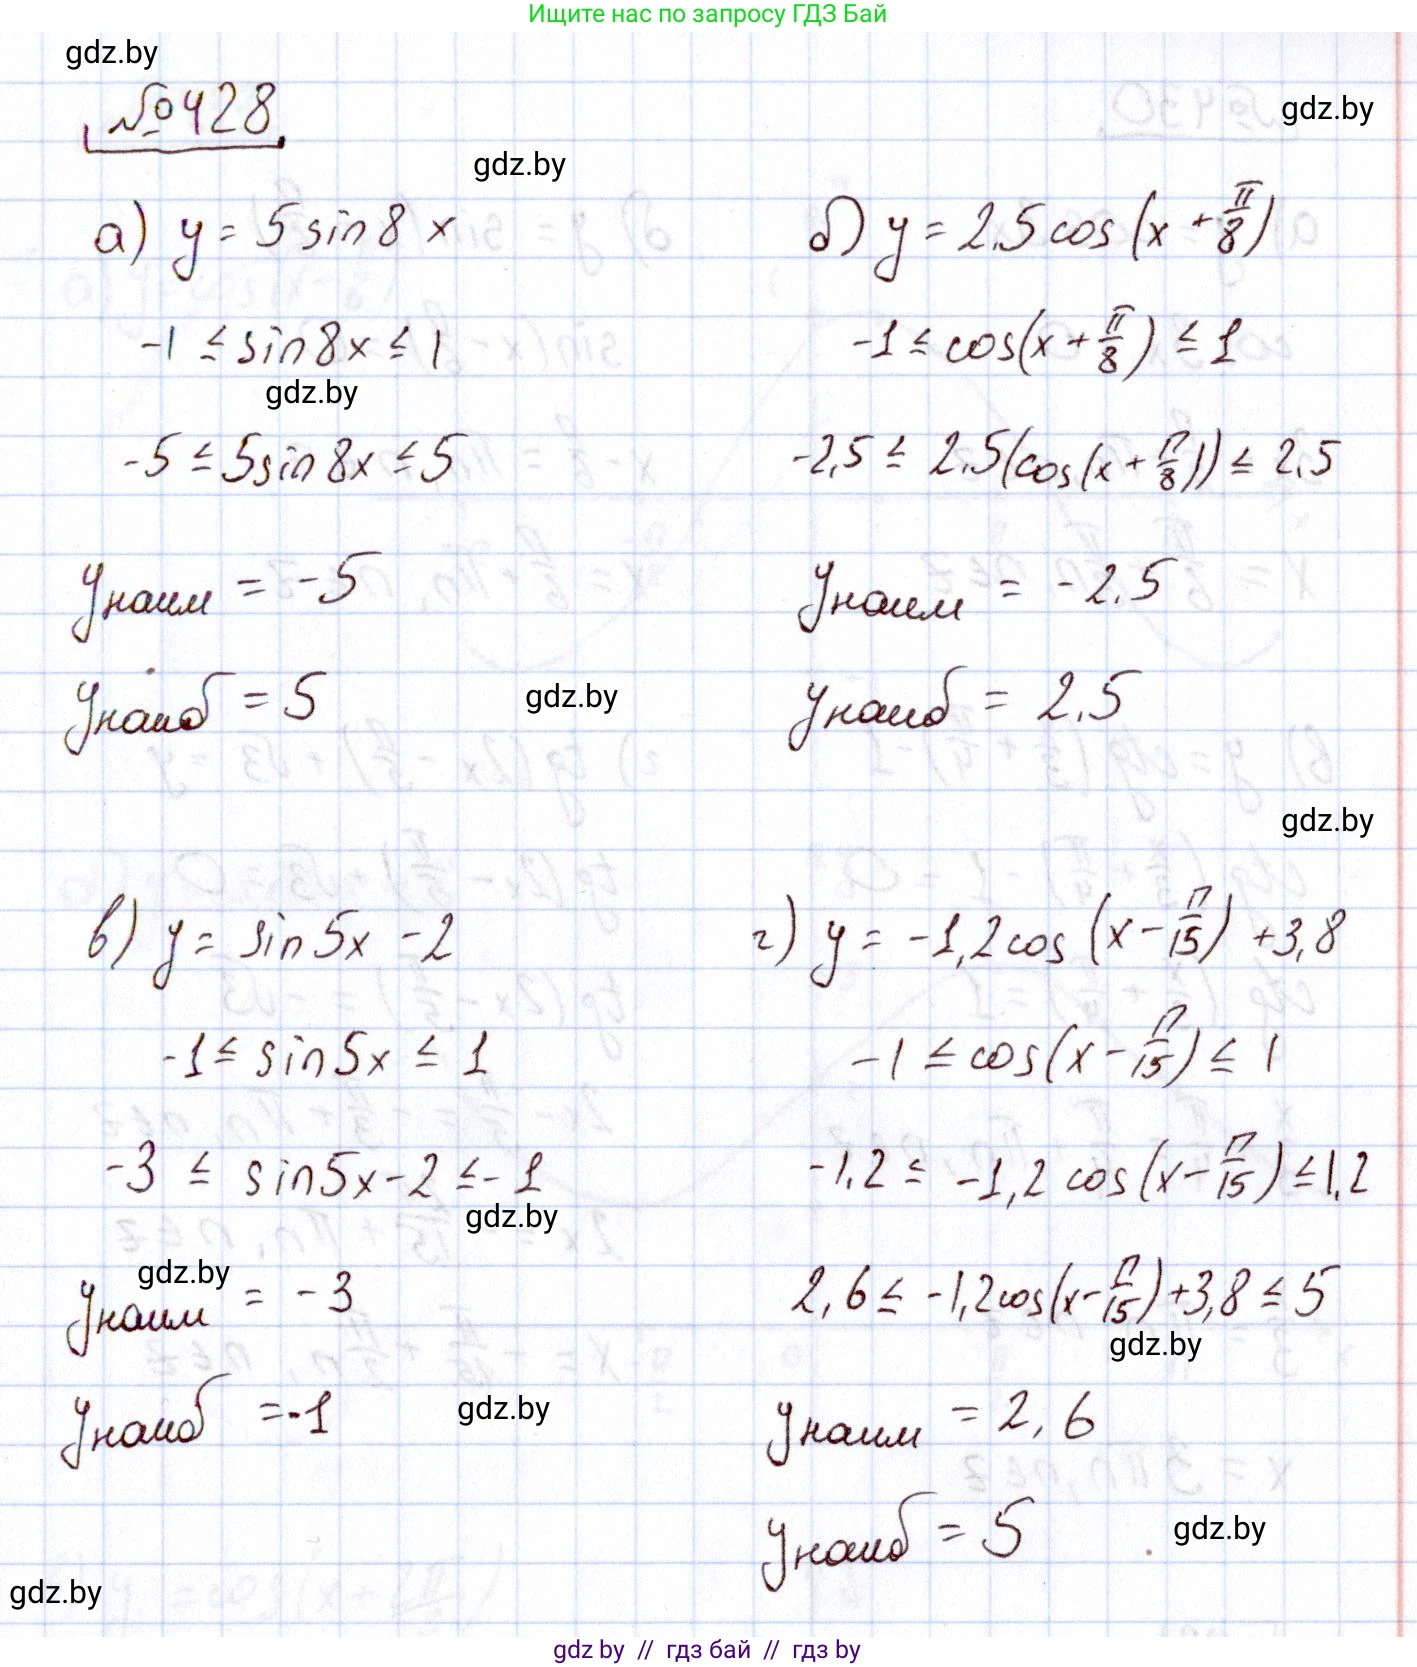 Ищите нас по запросу ГДЗ Бай
gdz.by
№428
gdz.by
gdz.by
а) y = 5 sin 8x
-1 ≤ sin 8x ≤ 1
gdz.by
-5 ≤ 5 sin 8x ≤ 5
yнаим = -5
yнаиб = 5
gdz.by
б) y = 2,5 cos (x + π/8)
-1 ≤ cos(x + π/8) ≤ 1
-2,5 ≤ 2,5(cos(x + π/8)) ≤ 2,5
yнаим = -2,5
yнаиб = 2,5
gdz.by
в) y = sin 5x - 2
-1 ≤ sin 5x ≤ 1
-3 ≤ sin 5x - 2 ≤ -1
gdz.by
gdz.by
yнаим = -3
yнаиб = -1
gdz.by
г) y = -1,2 cos (x - π/15) + 3,8
-1 ≤ cos(x - π/15) ≤ 1
-1,2 ≤ -1,2 cos(x - π/15) ≤ 1,2
2,6 ≤ -1,2 cos(x - π/15) + 3,8 ≤ 5
gdz.by
yнаим = 2,6
yнаиб = 5
gdz.by
gdz.by
gdz by // гдз бай // гдз by